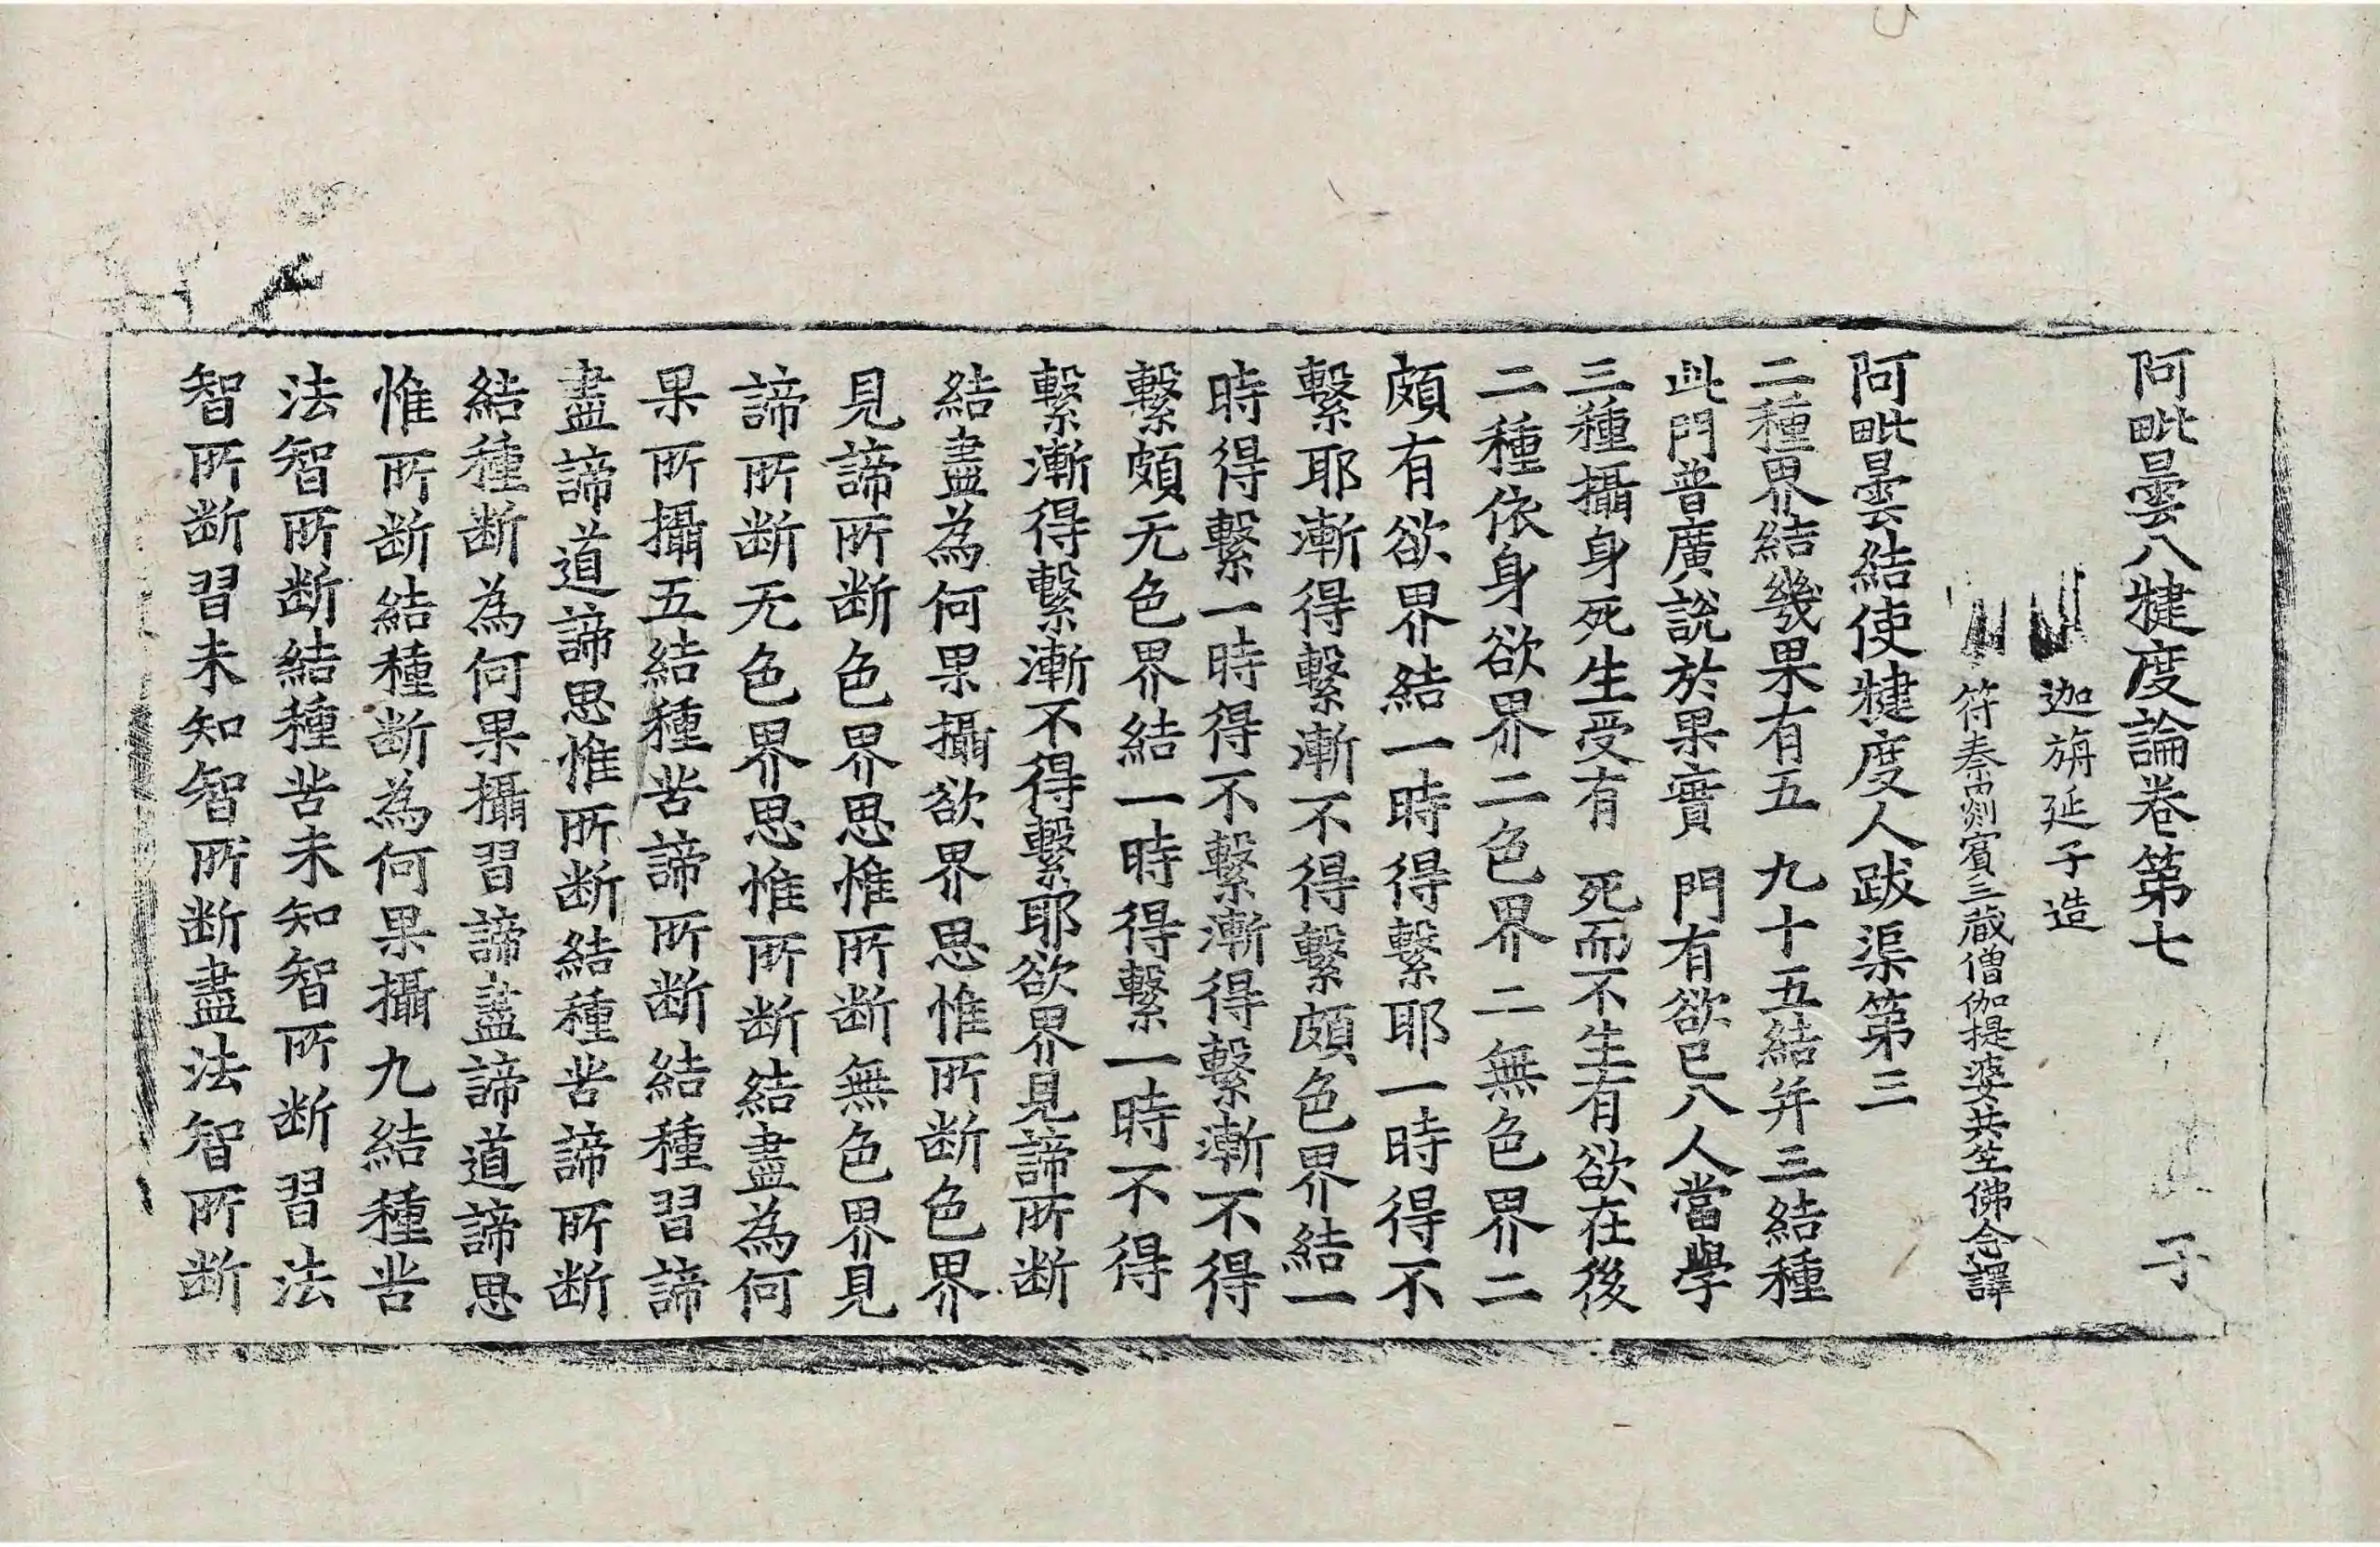 阿毗曇八犍度論卷第七　子
迦旃延子造
符秦罽賓三藏僧伽提婆共竺佛念譯
阿毗曇結使犍度人跋渠第三
二種界結幾果有五　九十五結并三結種
此門普廣說於果實　門有欲已八人當學
三種攝身死生受有　死而不生有欲在後
二種依身欲界二色界二無色界二
頗有欲界結一時得繫耶一時得不
繫耶漸得繫漸不得繫頗色界結一
時得繫一時得不繫漸得繫漸不得
繫頗无色界結一時得繫一時不得
繫漸得繫漸不得繫耶欲界見諦所断
結盡為何果攝欲界思惟所断色界
見諦所断色界思惟所断無色界見
諦所断无色界思惟所断結盡為何
果所攝五結種苦諦所断結種習諦
盡諦道諦思惟所断結種苦諦所断
結種断為何果攝習諦盡諦道諦思
惟所断結種断為何果攝九結種苦
法智所断結種苦未知智所断習法
智所断習未知智所断盡法智所断